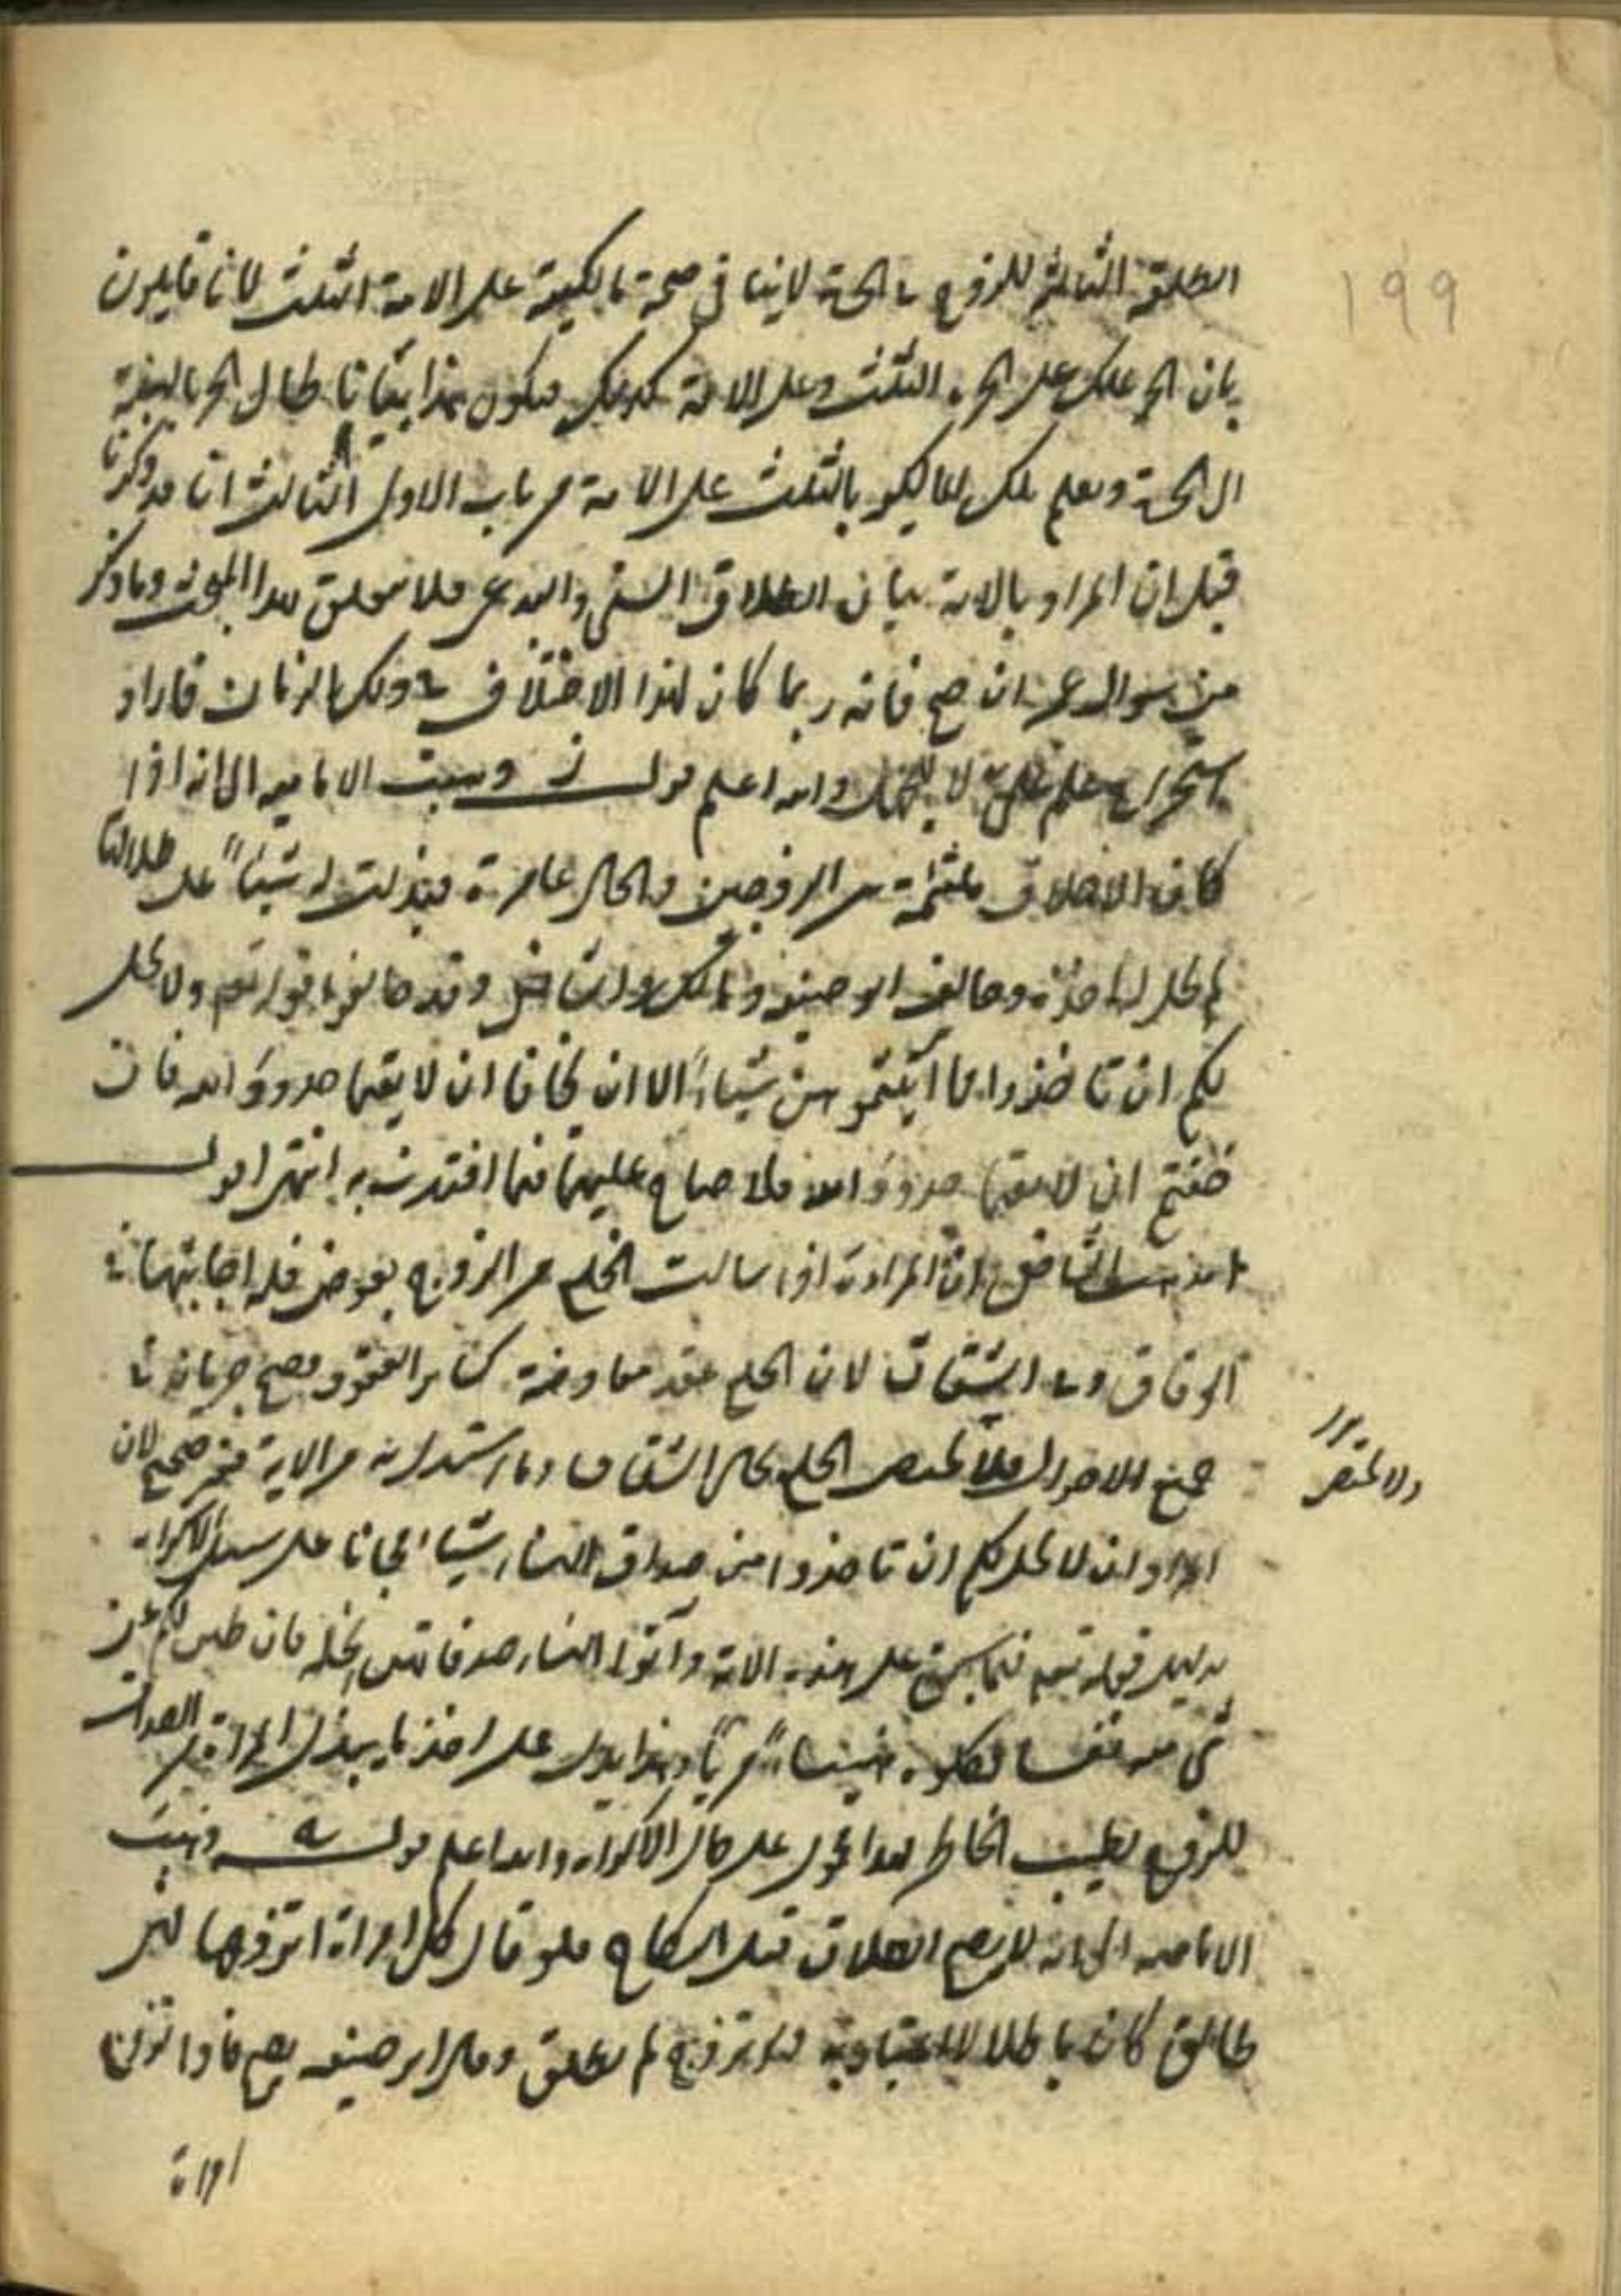 ١٩٩
الطلقة الثالثة للزوج في الحرة لا ينافي صحة مالكيته على الامة الثلث لانا قايلون
بان الحر يملك على الحرة الثلث وعلى الامة كذلك فيكون هذا بيانا لحال الحر بالنسبة
الى الحرة ويعلم ملك بالثلث على الامة من باب الاولى الثالث انا قد ذكرنا
قبل ان المراد بالاية بيان الطلاق السني والبدعي فلا تعلق لهذا المبحث وما ذكر
من سوال عمر ان صح فانه ربما كان لهذا الاختلاف في ذلك الزمان فاراد
والله اعلم قولـــه وذهبت الامامية الى انه اذا
كانت الاخلاق ملتئمة بين الزوجين والحال عامرة فبذلت له شيئا على طلاقها
لم يحل له اخذه وخالف ابو حنيفة ومالك والشافعي وقد خالفوا قوله تعم ولا يحل
لكم ان تاخذوا مما آتيتموهن شيئا الا ان يخافا ان لا يقيما حدود الله فان
خفتم ان لا يقيما حدود الله فلا جناح عليهما فيما افتدت به انتهى اقولـــ
مذهب الشافعي ان المراة اذا سالت الخلع من الزوج بعوض فله اجابتها في
الوفاق وفي الشقاق لان الخلع عقد معاوضة كساير العقود فيصح جريانه في
جميع الاحوال فلا يختص الخلع بحال الشقاق وما استدل به من الاية فغير صحيح لان
المراد انه لا يحل لكم ان تاخذوا من صداق النساء شيئا مجانا على سبيل الاكراه
بدليل قوله تعم فيما سبق على هذه الاية وآتوا النساء صدقاتهن نحلة فان طبن لكم عن
شي منه نفسا فكلوه هنيئا مريا وهذا يدل على اخذ ما يبذل المراة من الصداق
للزوج بطيب الخاطر فهذا محمول على حال الاكراه والله اعلم قولـــه وذهبت
الامامية الى انه لا يصح الطلاق قبل النكاح فلو قال كل امراة اتزوجها فهي
طالق كان باطلا لا اعتبار به فلو تزوج لم تطلق وقال ابو حنيفة يصح فاذا تزوج
امراة
ولا يختص